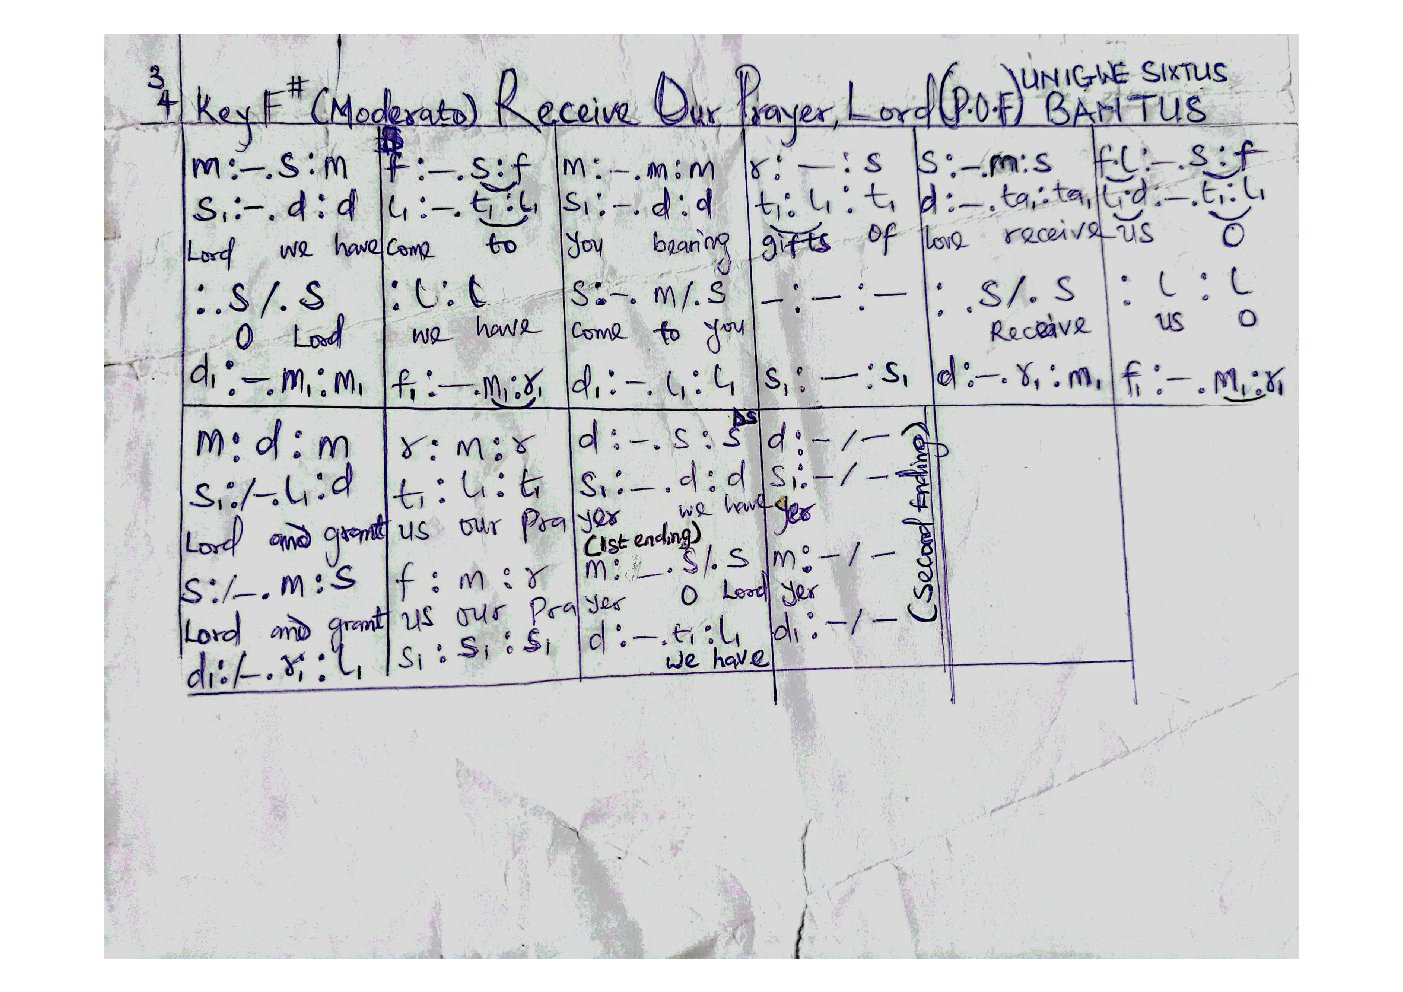 3/4 Key F# (Moderato) Receive Our Prayer, Lord (P.O.F) UNIGWE SIXTUS BAMTUS
m:-.s:m | f:-.s:f | m:-.m:m | r:-:s | s:-.m:s | f.l:-.s:f
s₁:-.d:d | l₁:-.t₁:l₁ | s₁:-.d:d | t₁:l₁:t₁ | d:-.ta₁:ta₁ | t₁.d:-.t₁:l₁
Lord we have come to you bearing gifts of love receive us O
:.s/.s | :l:l | s:-.m/.s | -:-:- | :.s/.s | :l:l
O Lord we have come to you Receive us O
d₁:-.m₁:m₁ | f₁:-.m₁:r₁ | d₁:-.l₁:l₁ | s₁:-:s₁ | d:-.r₁:m₁ | f₁:-.m₁:r₁
m:d:m | r:m:r | d:-.s:s DS | d:-/-
s₁:/-.l₁:d | t₁:l₁:t₁ | s₁:-.d:d | s₁:-/-
Lord and grant us our Pra yer we have yer
(1st ending)
(Second Ending)
s:/-.m:s | f:m:r | m:-.s/.s | m:-/-
Lord and grant us our Pra yer O Lord yer
d₁:/-.r₁:l₁ | s₁:s₁:s₁ | d:-.t₁:l₁ | d₁:-/-
we have